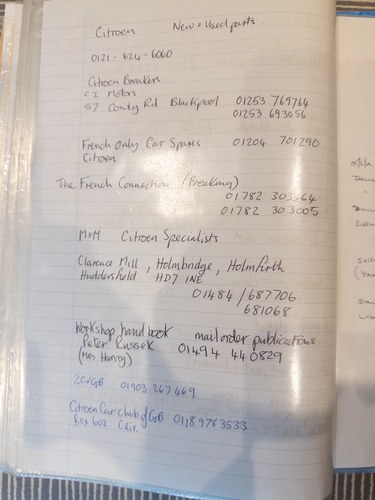 Citroen New + Used parts.
0121 - 624 - 6060
Citroen Breakers.
Motors
57 Condy Rd Blackpool 01253 769764
01253 693656
French Only Car Spares 01204 701290
Citroen
The French Connection (Breaking)
01782 303564
01782 303005
M+M Citroen Specialists
Clarence Mill, Holmbridge, Holmfirth
Huddersfield HD7 1NE
01484 / 687706
681068
Workshop hand book mail order publications
Peter Russek 01494 440829
(Mrs Harvey)
2CVGB 01903 267469
Citroen Car Club of GB 01189783533
Box 602